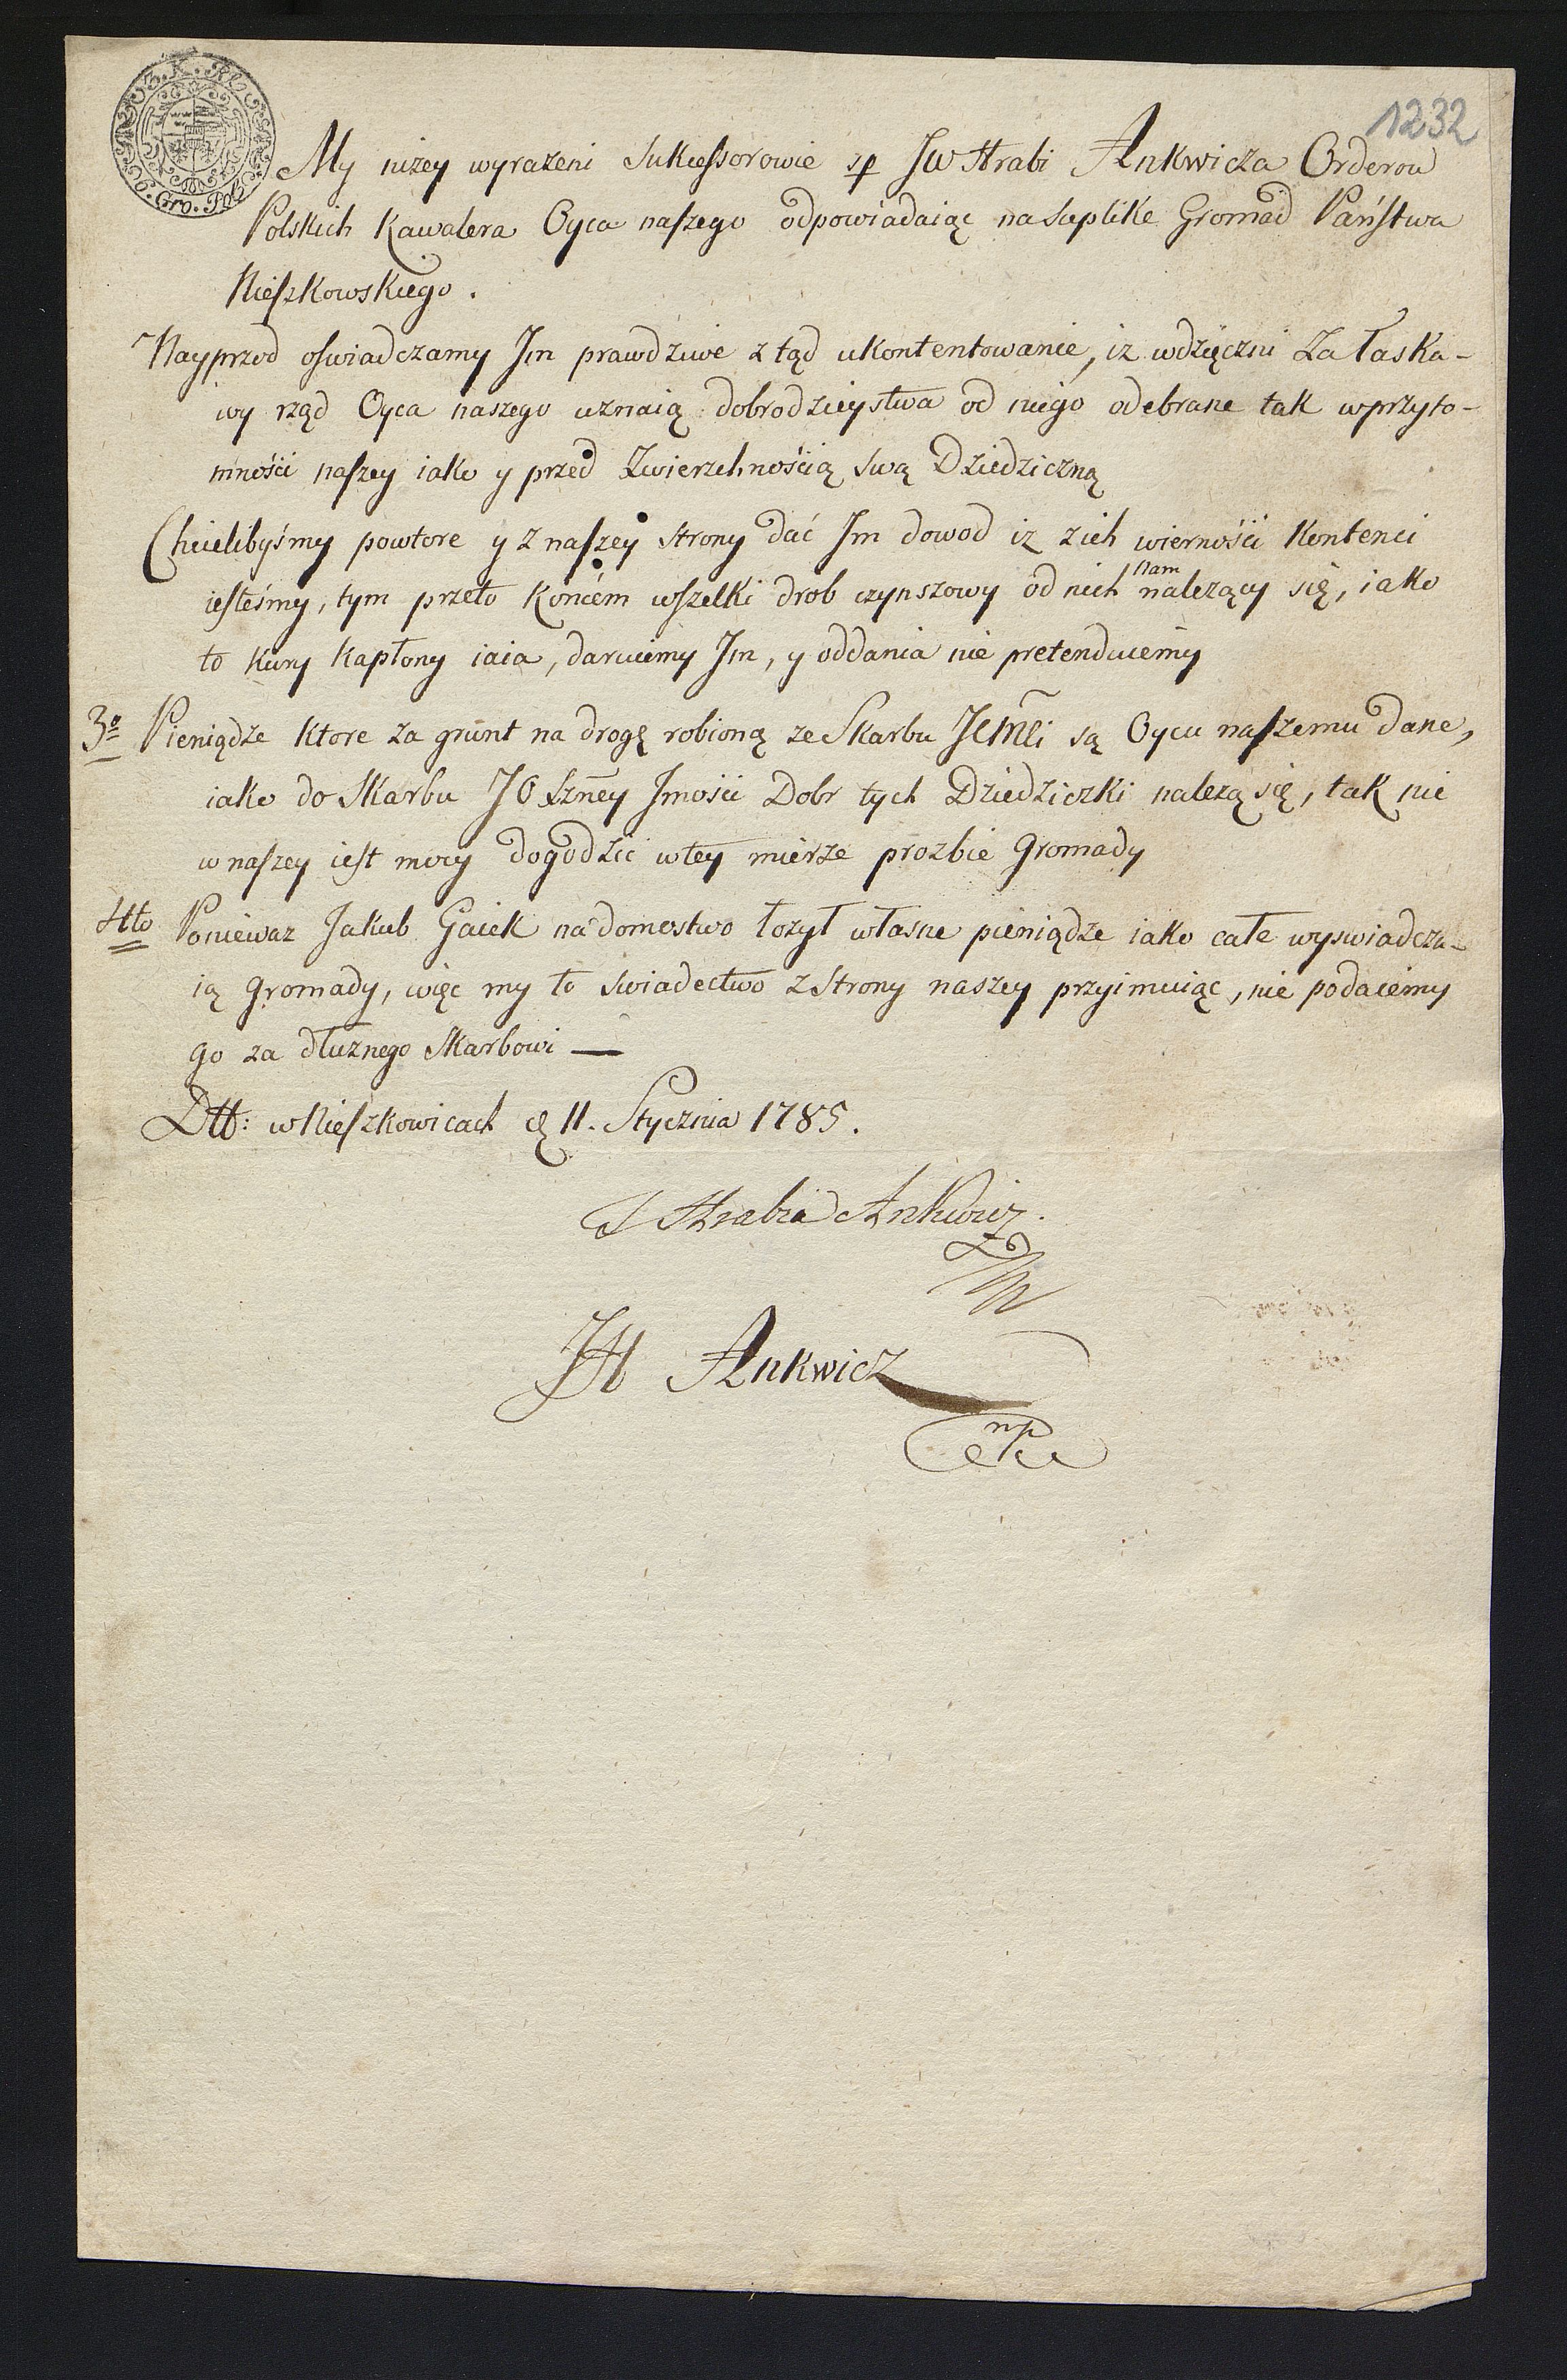 1232
3. K. R.
6. Gro. Pol.
My niżey wyrażeni Sukcessorowie sp JW Hrabi Ankwicza Orderow
Polskich Kawalera Oyca naszego odpowiadaiąc na Suplike Gromad Państwa
Nieszkowskiego.
Nayprzod oswiadczamy Im prawdziwe ztąd ukontentowanie, iż wdzięczni za łaska-
wy rząd Oyca naszego uznaią dobrodzieystwa od niego odebrane tak wprzyto-
mności naszey iako y przed Zwierzchnością swą Dziedziczną
Chcielibyśmy powtore y z naszey strony dać Im dowod iż z ich wierności kontenci
iesteśmy, tym przeto końcem wszelki drob czynszowy od nich Nam należący się, iako
to kury kapłony iaia, daruiemy Im, y oddania nie pretenduiemy
3o Pieniądze ktore za grunt na drogę robioną ze Skarbu JCMci są Oycu naszemu dane,
iako do Skarbu JO Xżney Jmości Dobr tych Dziedziczki należą się, tak nie
w naszey iest mocy dogodzić wtey mierze prozbie Gromady
4to Ponieważ Jakub Gaiek na domostwo łożył własne pieniądze iako całe wyswiadcza-
ią Gromady, więc my to swiadectwo z strony naszey przyimuiąc, nie podaiemy
go za dłużnego Skarbowi —
Dtt: w Nieszkowicach d 11. Stycznia 1785.
J Hrabia Ankwicz.
JH Ankwicz
mp